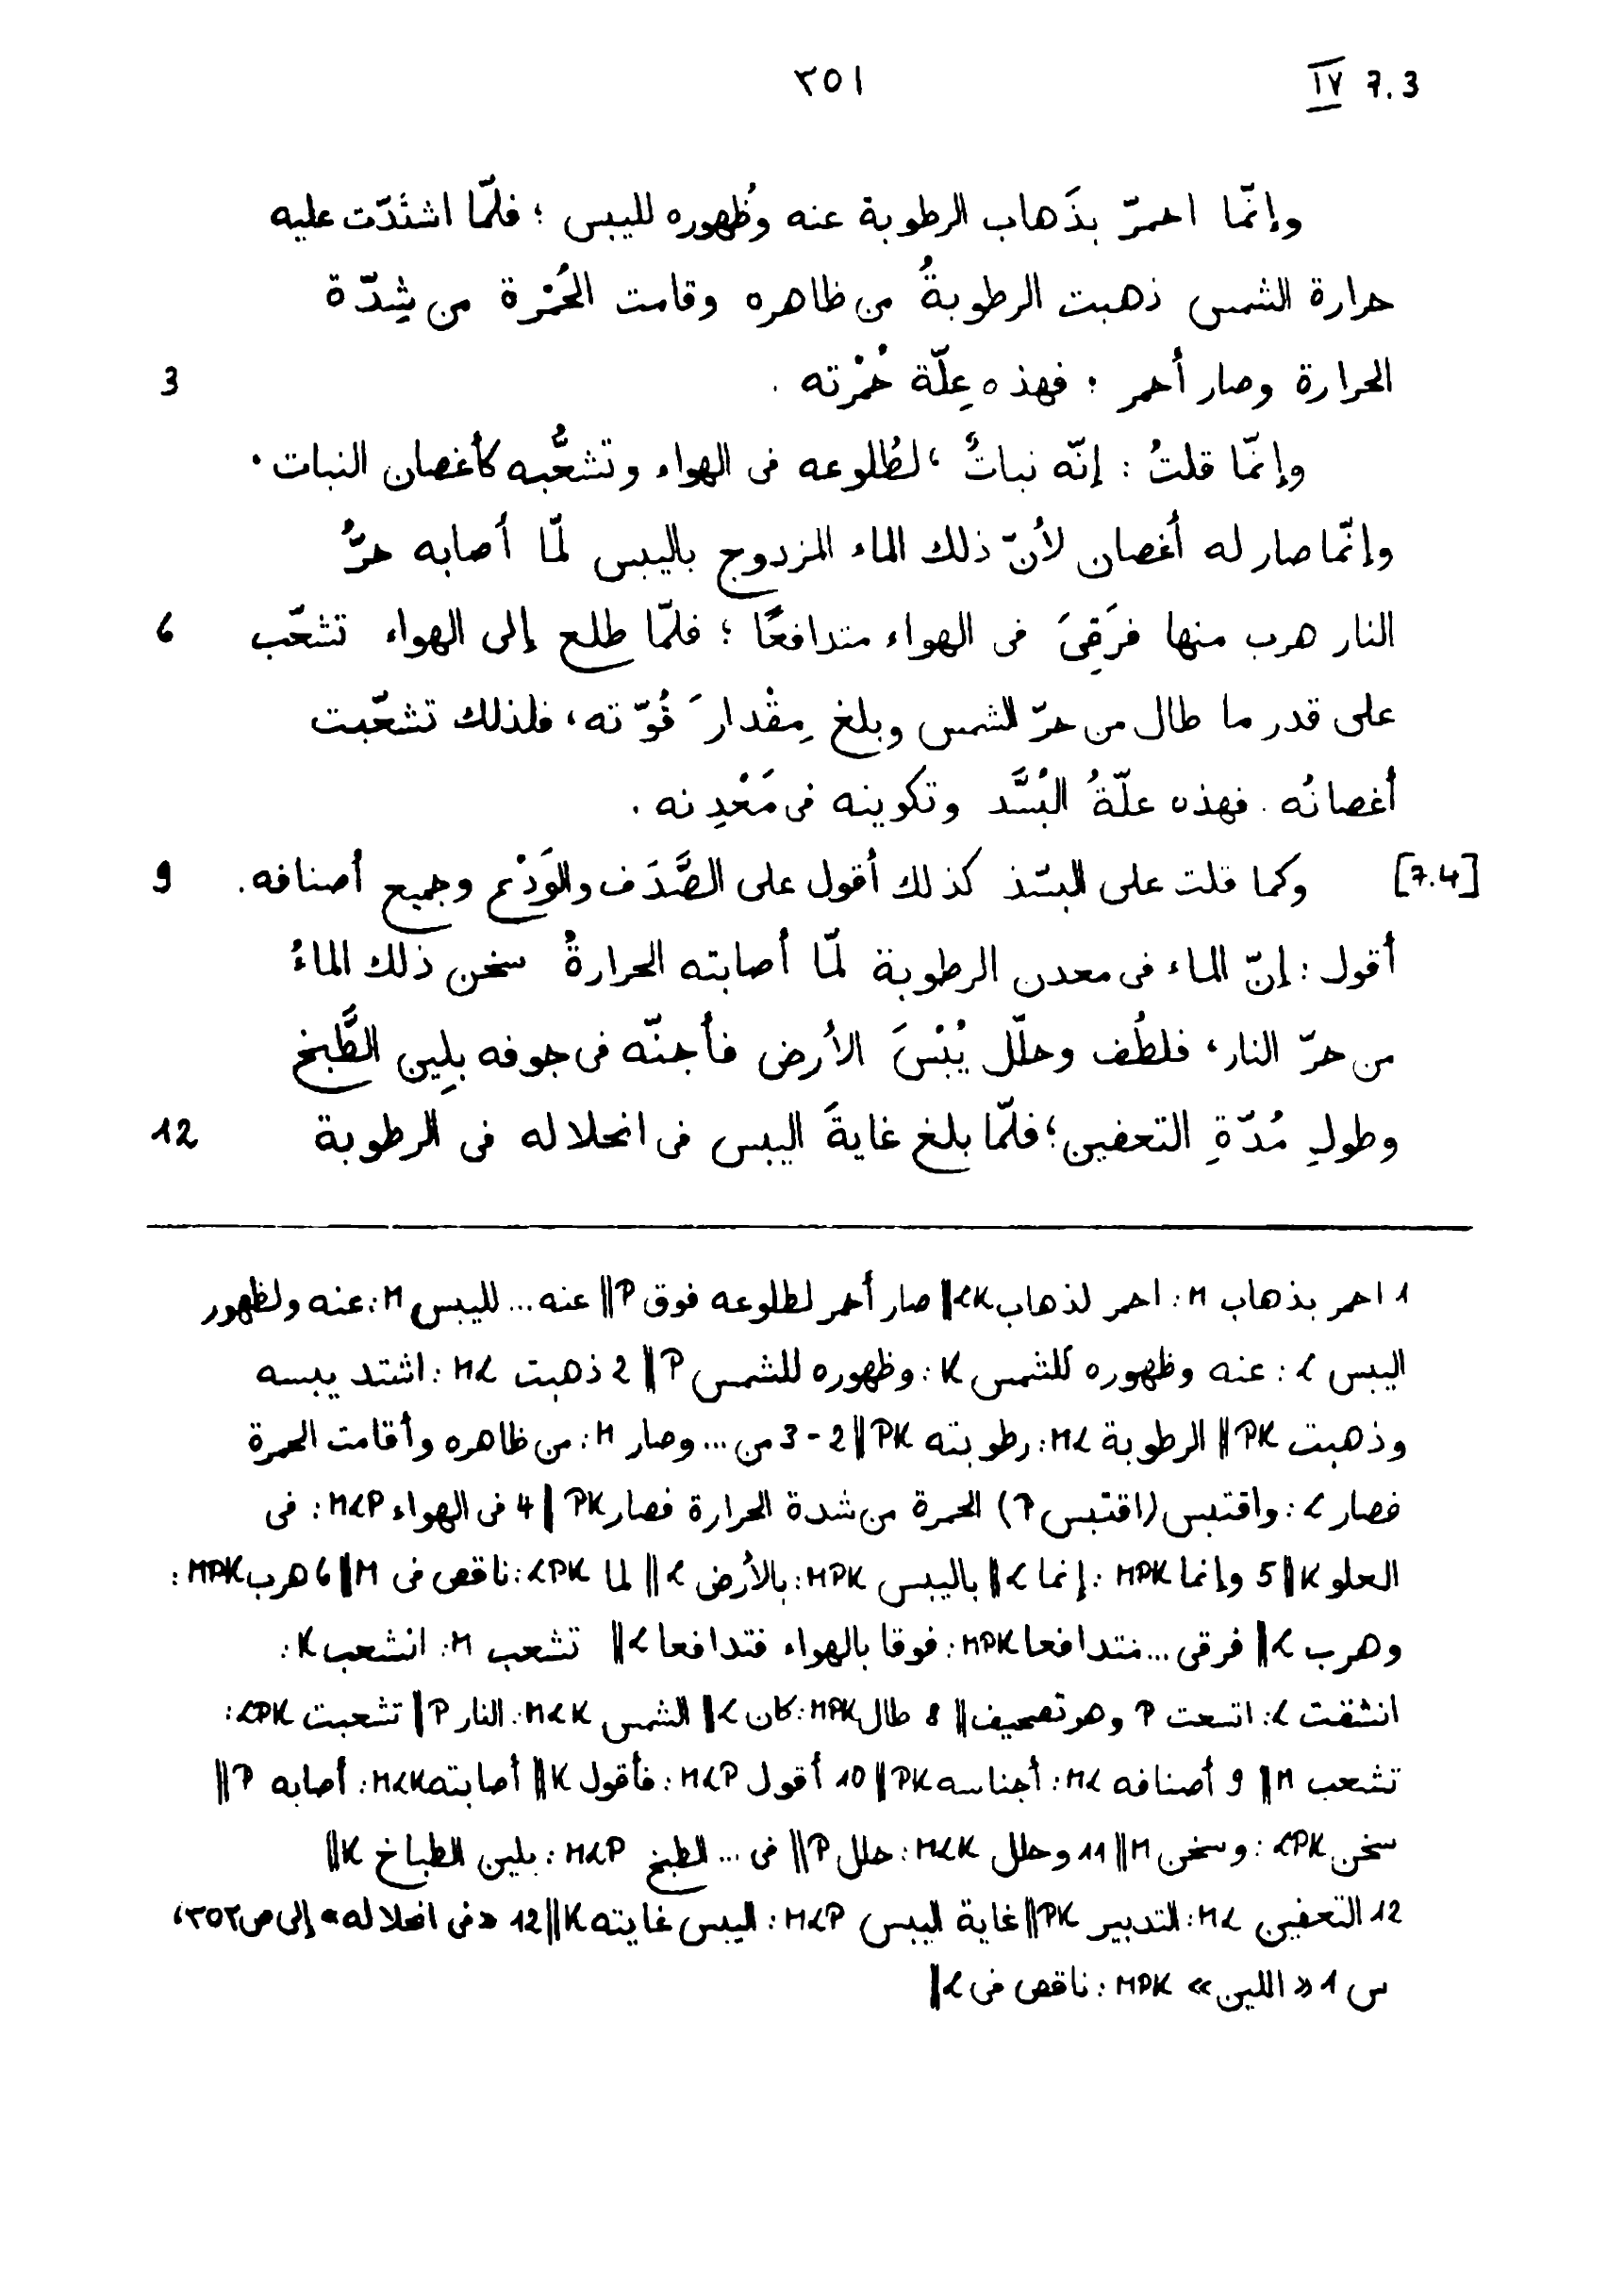 IV 7.3
٣٥١
وإنّما احمرّ بذَهاب الرطوبة عنه وظُهوره لليبس ؛ فلمّا اشتَدّت عليه
حرارة الشمس ذهبت الرطوبةُ من ظاهره وقامت الحُمْرة من شِدّة
الحرارة وصار أحمر ؛ فهذه عِلّة حُمْرته . 3
وإنّما قلتُ : إنّه نباتٌ ، لطُلوعه فى الهواء وتشعُّبه كأغصان النبات .
وإنّما صار له أغصان لأنّ ذلك الماء المزدوج باليبس لمّا أصابه حرُّ
النار هرب منها فرَقِىَ فى الهواء متدافعًا ؛ فلمّا طلع إلى الهواء تشعّب 6
على قدر ما طال من حرّ الشمس وبلغ مِقْدارَ قُوّته ، فلذلك تشعّبت
أغصانُه . فهذه علّةُ البُسَّد وتكوينه فى مَعْدِنه .
[7.4] وكما قلت على البسّذ كذلك أقول على الصَّدَف والوَدْع وجميع أصنافه . 9
أقول : إنّ الماء فى معدن الرطوبة لمّا أصابته الحرارةُ سخن ذلك الماءُ
من حرّ النار ، فلطُف وحلّل يُبْسَ الأرض فأجنّه فى جوفه بلِين الطَّبخ
وطولِ مُدّةِ التعفين ؛ فلمّا بلغ غايةَ اليبس فى انحلاله فى الرطوبة 12
1 احمر بذهاب M : احمر لذهاب LK || صار أحمر لطلوعه فوق P || عنه ... لليبس M : عنه ولظهور
اليبس L : عنه وظهوره للشمس K : وظهوره للشمس P || 2 ذهبت ML : اشتد يبسه
وذهبت PK || الرطوبة ML : رطوبته PK || 2-3 من ... وصار M : من ظاهره وأقامت الحمرة
فصار L : واقتبس (اقتبس P) الحمرة من شدة الحرارة فصار PK || 4 فى الهواء MLP : فى
العلو K || 5 وإنما MPK : إنما L || باليبس MPK : بالأرض L || لما LPK : ناقص فى M || 6 هرب MPK :
وهرب L || فرقى ... متدافعا MPK : فوقا بالهواء فتدافعا L || تشعب M : انشعب K :
انشقت L : اتسعت P وهو تصحيف || 8 طال MPK : كان L || الشمس MLK : النار P || تشعبت LPK :
تشعب M || 9 أصنافه ML : أجناسه PK || 10 أقول MLP : فأقول K || أصابته MLK : أصابه P ||
سخن LPK : وسخن M || 11 وحلل MLK : حلل P || فى ... الطبخ MLP : بلين الطباخ K ||
12 التعفين ML : التدبير PK || غاية ليبس MLP : اليبس غايته K || 12 «فى انحلاله» إلى ص ٣٥٢ ،
س 1 «اللين» MPK : ناقص فى L ||